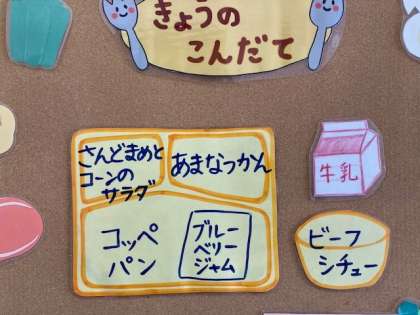 きょうの
こんだて
さんどまめと
コーンの
サラダ
あまなつかん
コッペ
パン
ブルー
ベリー
ジャム
牛乳
ビーフ
シチュー